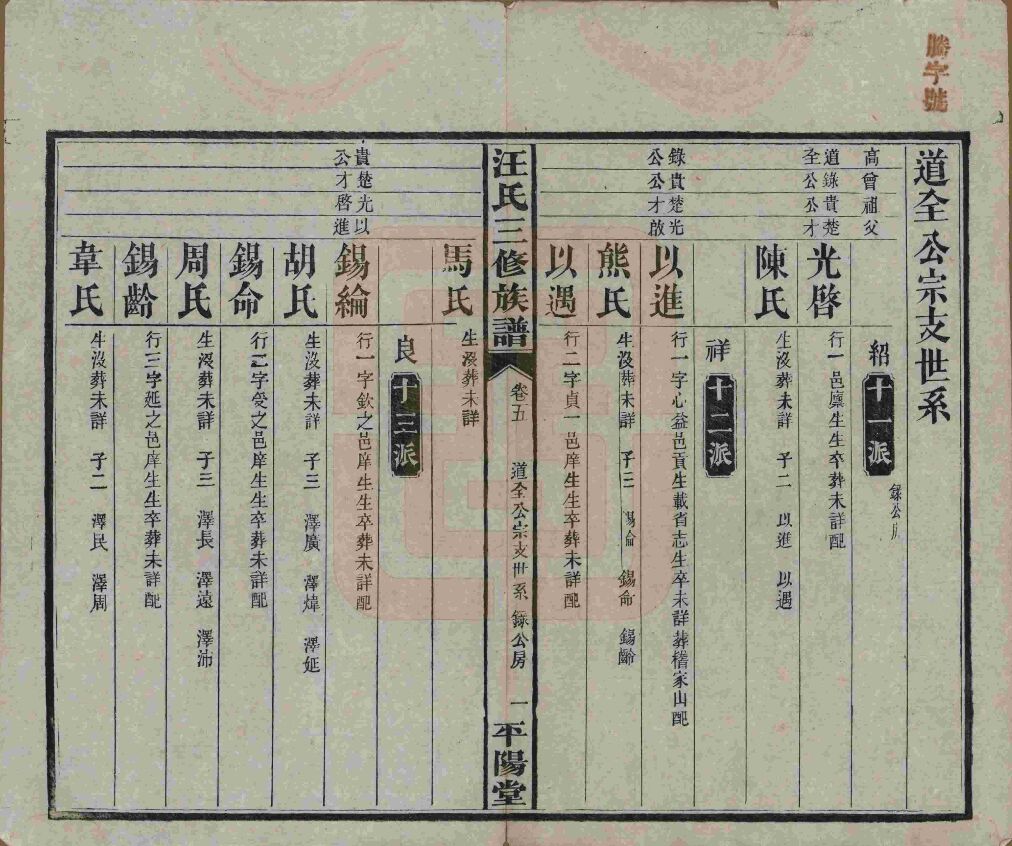 勝字號
道全公宗支世系
高曾祖父
紹 十一派 錄公房
道錄貴楚
全公公才
光啓 行一邑廩生生卒葬未詳配
陳氏 生沒葬未詳 子二 以進 以遇
祥 十二派
錄貴楚光
公公才啟
以進 行一字心益邑貢生載省志生卒未詳葬稽家山配
熊氏 生沒葬未詳 子三 錫綸 錫命 錫齡
以遇 行二字貞一邑庠生生卒葬未詳配
汪氏三修族譜 卷五 道全公宗支世系 錄公房 一 平陽堂
馬氏 生沒葬未詳
良 十三派
貴楚光以
公才啓進
錫綸 行一字欽之邑庠生生卒葬未詳配
胡氏 生沒葬未詳 子三 澤廣 澤煒 澤延
錫命 行二字爰之邑庠生生卒葬未詳配
周氏 生沒葬未詳 子三 澤長 澤遠 澤沛
錫齡 行三字延之邑庠生生卒葬未詳配
韋氏 生沒葬未詳 子二 澤民 澤周